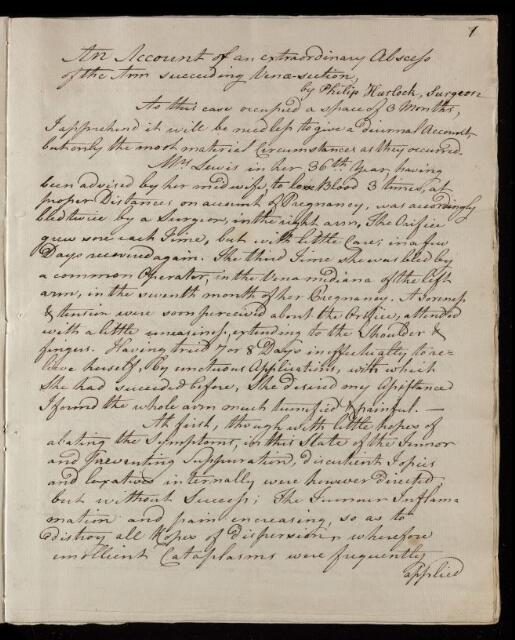 1
An Account of an extraordinary Abscess
of the Arm succeeding Venæ-section,
by Philip Hurlock, Surgeon
As this case occupied a space of 3 Months,
I apprehend it will be needless to give a diurnal Account,
but only the most material Circumstances as they occurred.
Mrs. Lewis in her 36th. Year, having
been advised by her midwife, to lose Blood 3 times, at
proper Distances on account of Pregnancy, was accordingly
bled twice by a Surgeon, in the right arm, The Orifice
grew sore each Time, but with little Care, in a few
Days recovered again. The third Time she was bled by
a common Operator, in the Vena mediana of the left
arm, in the seventh month of her Pregnancy. A Soreness
& tension were soon perceived about the Orifice, attended
with a little uneasiness, extending to the Shoulder &
fingers. Having tried 7 or 8 Days ineffectually to re-
lieve herself, By unctuous Applications, with which
She had succeeded before, She desired my Assistance
I found the whole arm much tumified & painful. —
At first, though with little hopes of
abating the Symptoms, in this State of the Tumor
and Preventing Suppuration, discutient Topics
and laxatives internally were however directed
but without Success; The Tumour Inflama
mation and pain increasing, so as to
distroy all Hopes of dispersion, wherefore
emollient Cataplasms were frequently
applied